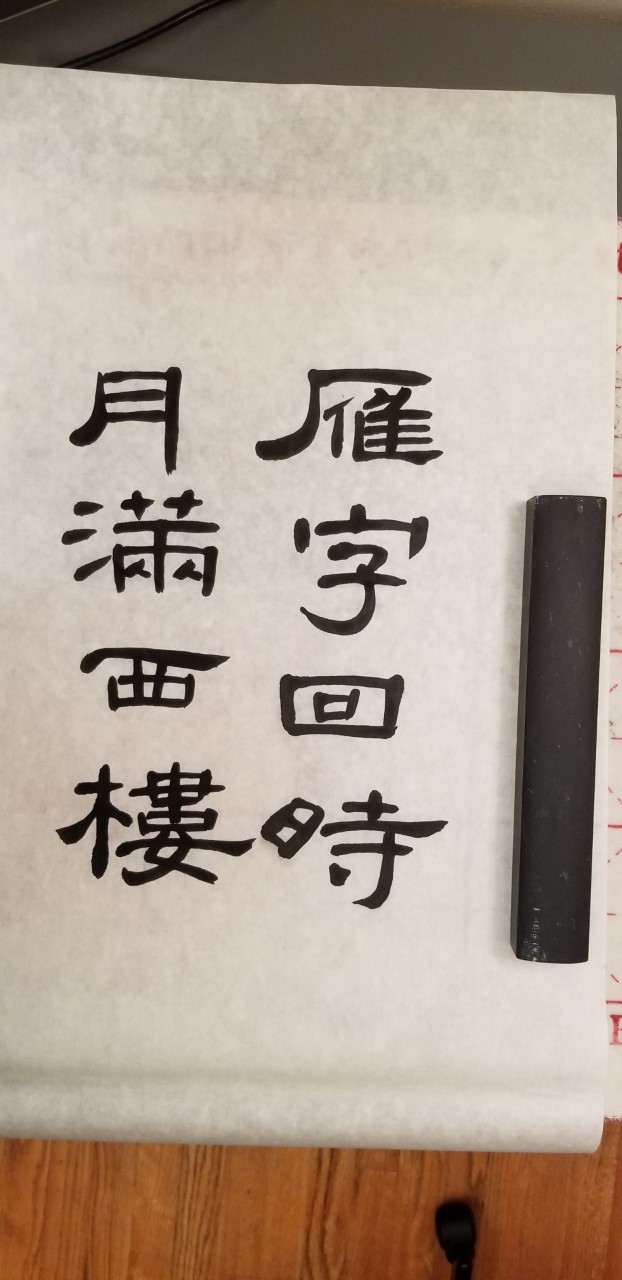 雁字回時
月滿西樓